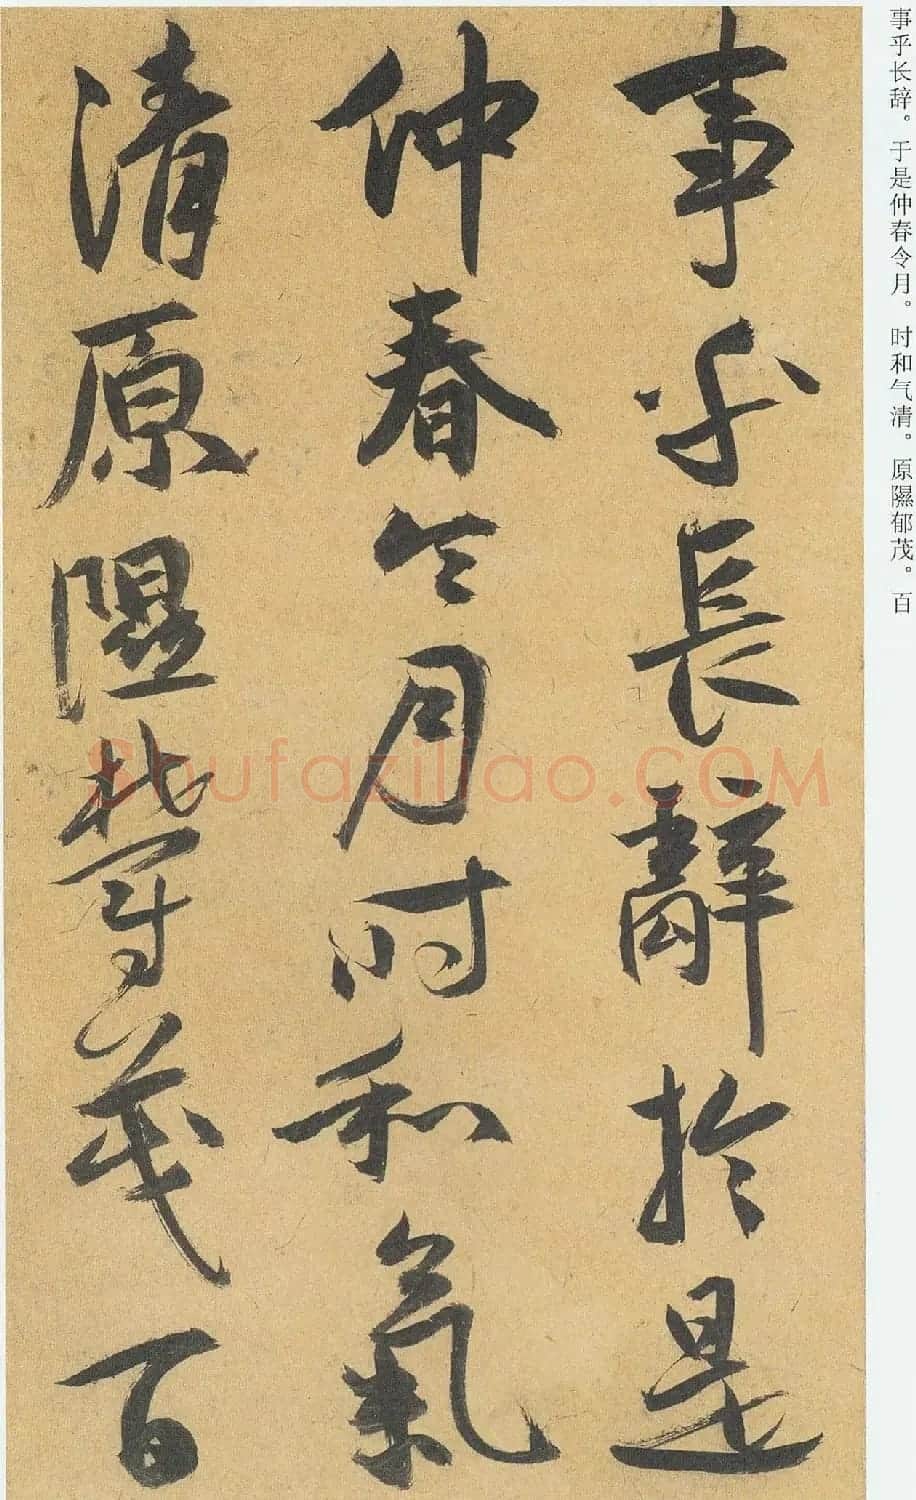 事乎长辞。于是仲春令月。时和气清。原隰郁茂。百
事乎長辭於是
仲春令月时和氣
清原隰鬱茂百
Shufaziliao.COM